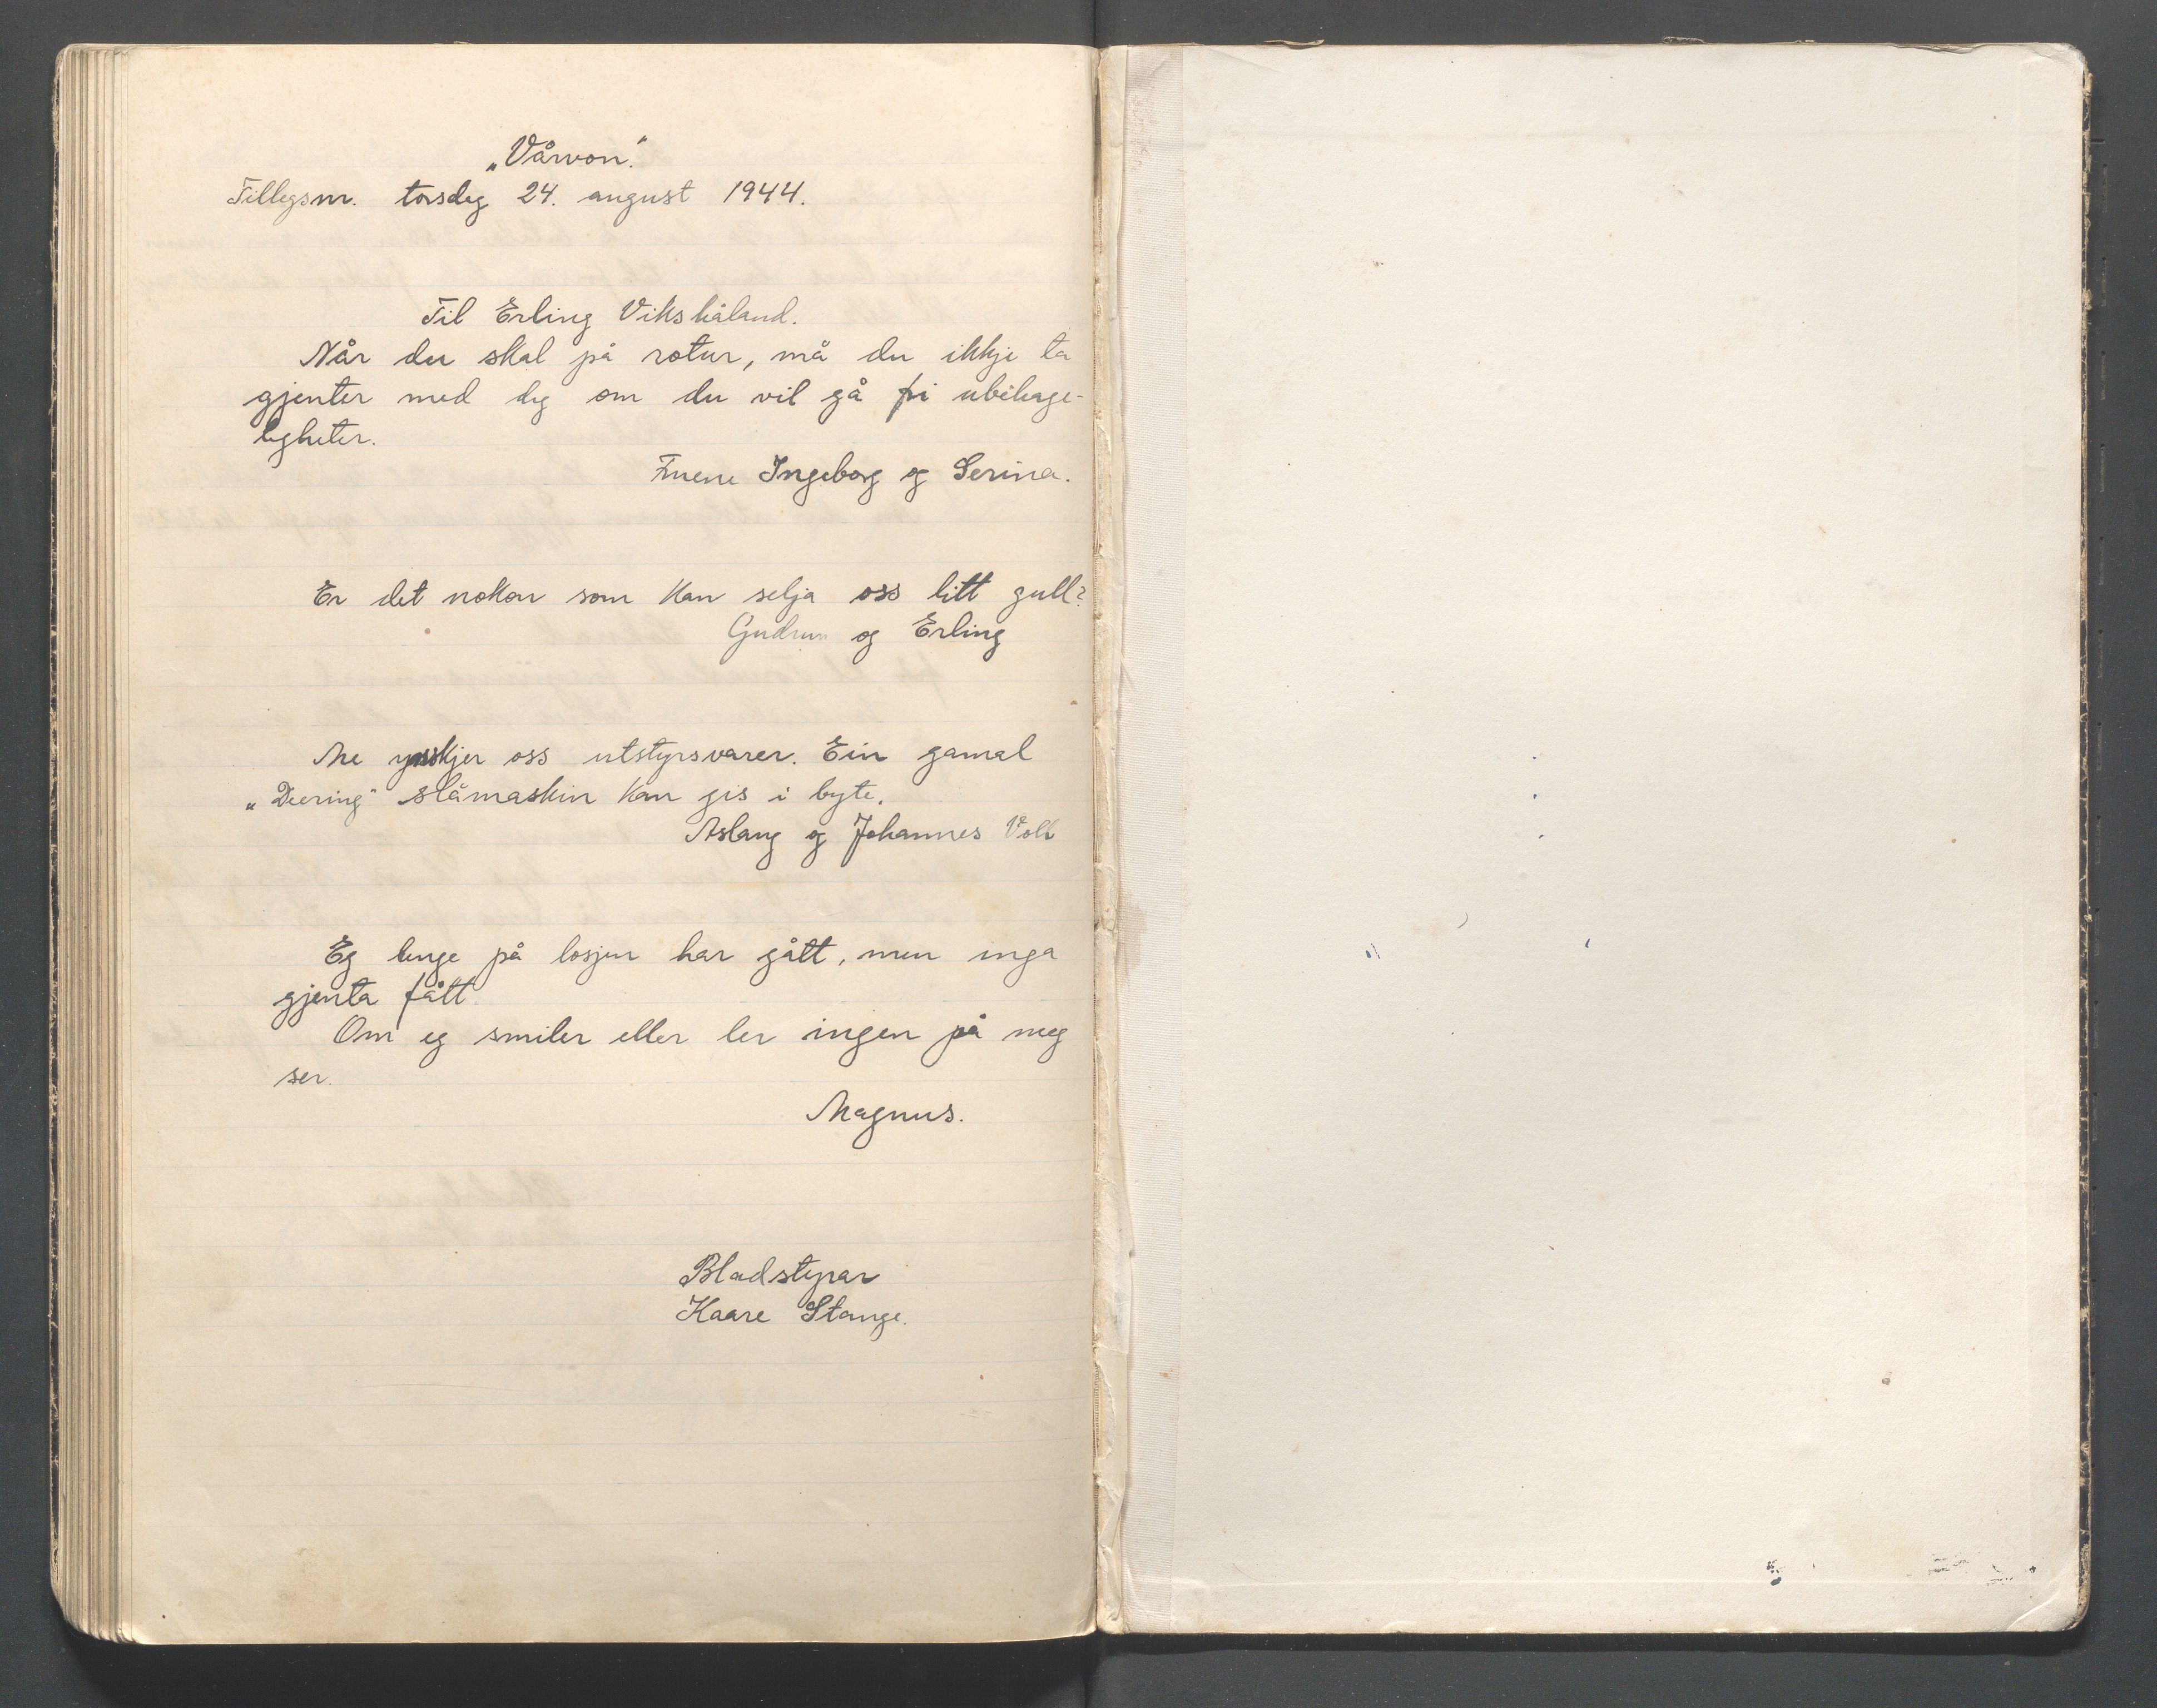 „Vårvon."
Tillegsnr. torsdag 24. august 1944.
Til Erling Vikshåland.
Når du skal på rotur, må du ikkje ta
gjenter med deg om du vil gå fri ubehage-
ligheter.
Fruene Ingeborg og Serina.
Er det nokon som kan selja oss litt gull?
Gudrun og Erling
Me ynskjer oss utstyrsvarer. Ein gamal
„Deering" slåmaskin kan gis i byte.
Aslaug og Johannes Voll
Eg lenge på losjen har gått, men inga
gjenta fått.
Om eg smiler eller ler ingen på meg
ser.
Magnus.
Bladstyrar
Kaare Stange.